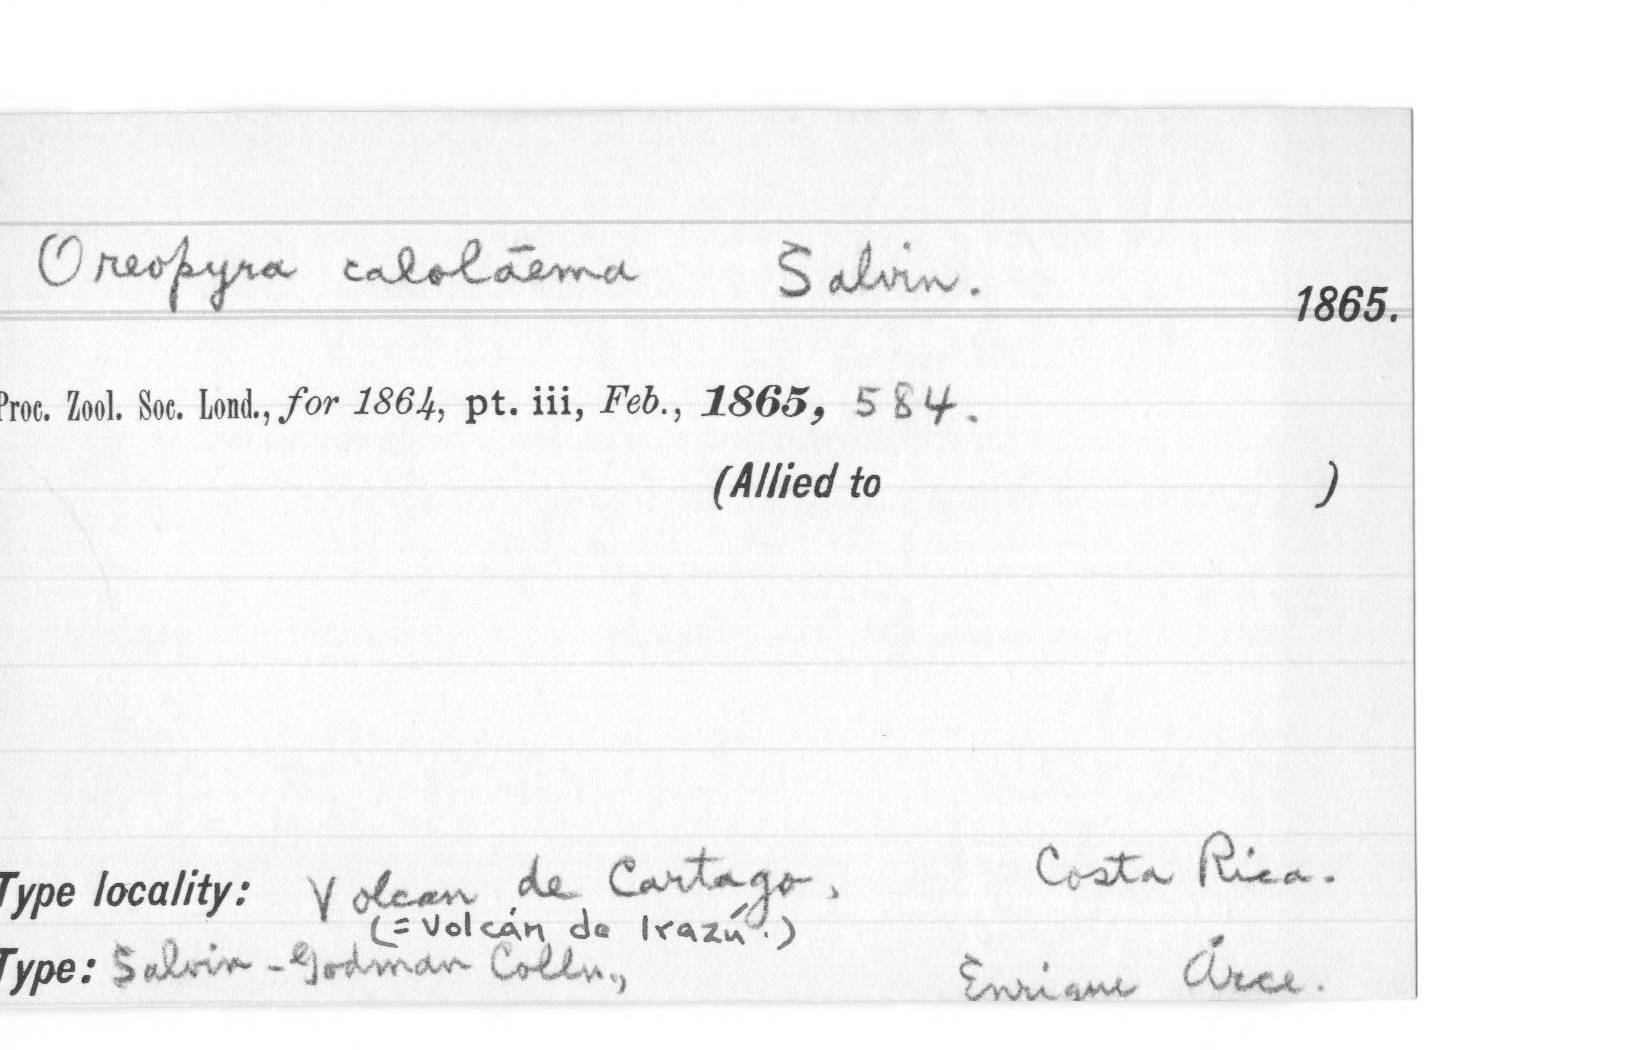 Oreopyra calolāema Salvin.
1865.
Proc. Zool. Soc. Lond., for 1864, pt. iii, Feb., 1865, 584.
(Allied to )
Type locality: Volcan de Cartago, Costa Rica.
(=Volcán de Irazú.)
Type: Salvin-Godman Colln., Enrique Árce.